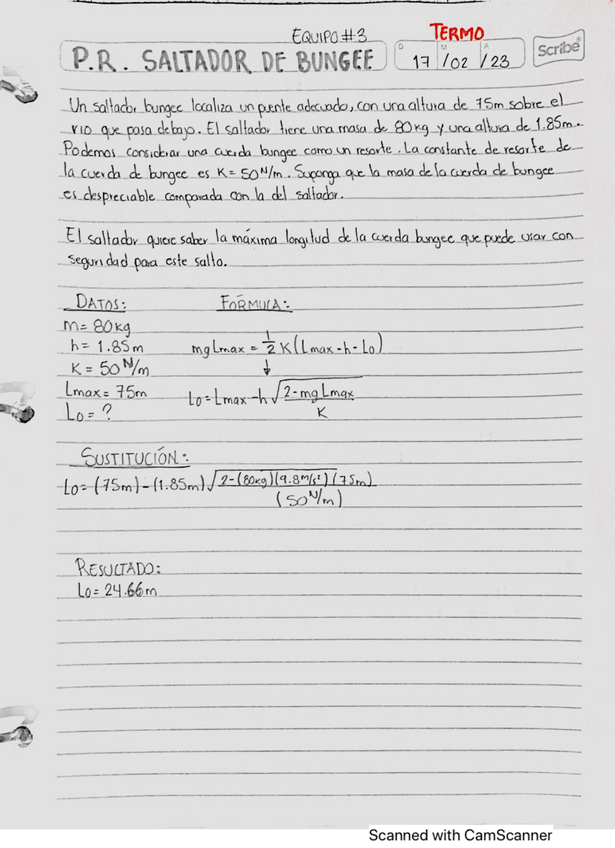 EQUIPO #3 TERMO
P.R. SALTADOR DE BUNGEE D M A 17/02/23 Scribe
Un saltador bungee localiza un puente adecuado, con una altura de 75m sobre el
rio que pasa debajo. El saltador tiene una masa de 80kg y una altura de 1.85m.
Podemos considerar una cuerda bungee como un resorte. La constante de resorte de
la cuerda de bungee es K= 50 N/m. Suponga que la masa de la cuerda de bungee
es despreciable comparada con la del saltador.
El saltador quiere saber la máxima longitud de la cuerda bungee que puede usar con
seguridad para este salto.
DATOS: FÓRMULA:
m= 80kg
h= 1.85m mgLmax = 1/2 K(Lmax-h-Lo)
K= 50 N/m ↓
Lmax= 75m Lo= Lmax-h√2-mgLmax/K
Lo= ?
SUSTITUCIÓN:
Lo= (75m)-(1.85m)√2-(80kg)(9.8m/s²)(75m)
(50 N/m)
RESULTADO:
Lo= 24.66m
Scanned with CamScanner